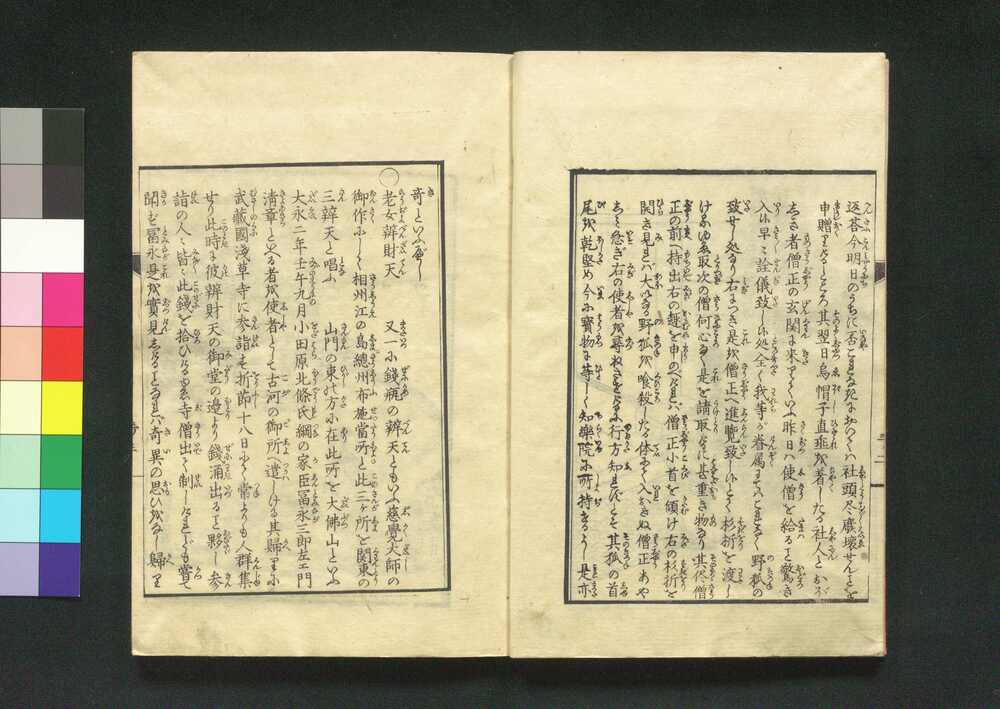 返答今明日のうちに否ごまるならは社頭尽く壊せんとを
申贈りけるところ其翌日烏帽子直垂を着したる社人とおぼ
しき者僧正の玄関に来りていふ昨日は使僧を給る事驚き
入候早々詮儀致し候処全く我等が眷属までにござなく野狐の
致せし処なり右につき是を僧正へ進覧致し候とて杉折を渡し
ける故取次の僧何心なく是を請取るに甚重き物なり其伏僧
正の前へ持出右の趣を申のべければ僧正小首を傾け右の杉折を
開き見れば大なる野狐を喰殺したる体にて入おきぬ僧正あや
しみ急ぎ右の使者を尋ねさするに行方知れずとぞ其狐の首
尾を乾堅め今に宝物に等しく知楽院に所持するよし是亦
奇といふべし
○老女辨財天 又一に錢瓶の辨天ともいふ慈覺大師の
御作にして相州江の島總州布施當所と此三ヶ所を関東の
三辨天と唱ふ 山門の東の方に在此所を大佛山といふ
大永二年壬午九月小田原北條氏綱の家臣冨永三郎左エ門
清章といへる者を使者として古河の御所へ遣しける其歸りに
武蔵國浅草寺に参詣す折節十八日にて常よりも人群集
せり此時に彼辨財天の御堂の邉より錢涌出る事夥し参
詣の人々皆々此錢を拾ひける寺僧出て制しけれども嘗て
聞ず冨永是を實見しけるとなれば奇異の思ひをなし歸りて